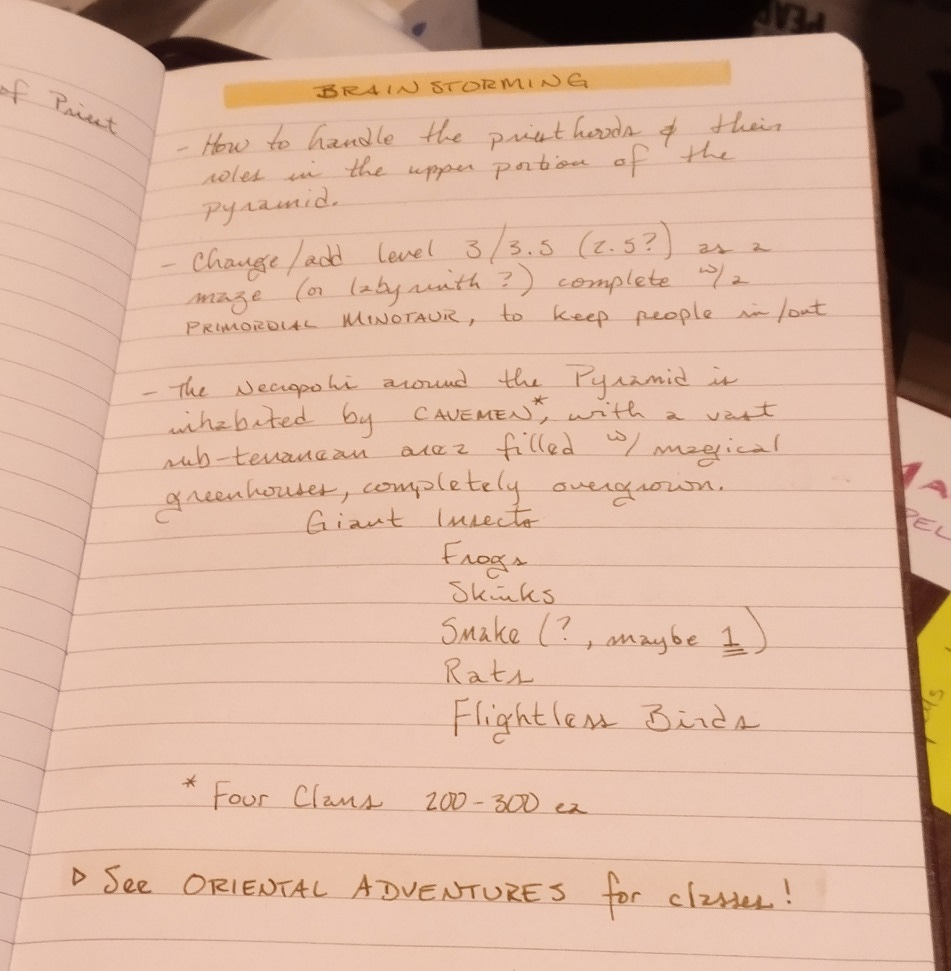 of Priest
BRAINSTORMING
- How to handle the priesthoods & their
roles in the upper portion of the
pyramid.
- Change/add level 3/3.5 (2.5?) as a
maze (or labyrinth?) complete w/a
PRIMORDIAL MINOTAUR, to keep people in/out
- The Necropoli around the Pyramid is
inhabited by CAVEMEN*, with a vast
sub-terranean area filled w/ magical
greenhouses, completely overgrown.
Giant Insects
Frogs
Skinks
Snake (?, maybe 1)
Rats
Flightless Birds
* Four Clans 200-300 ea
▷ See ORIENTAL ADVENTURES for classes!